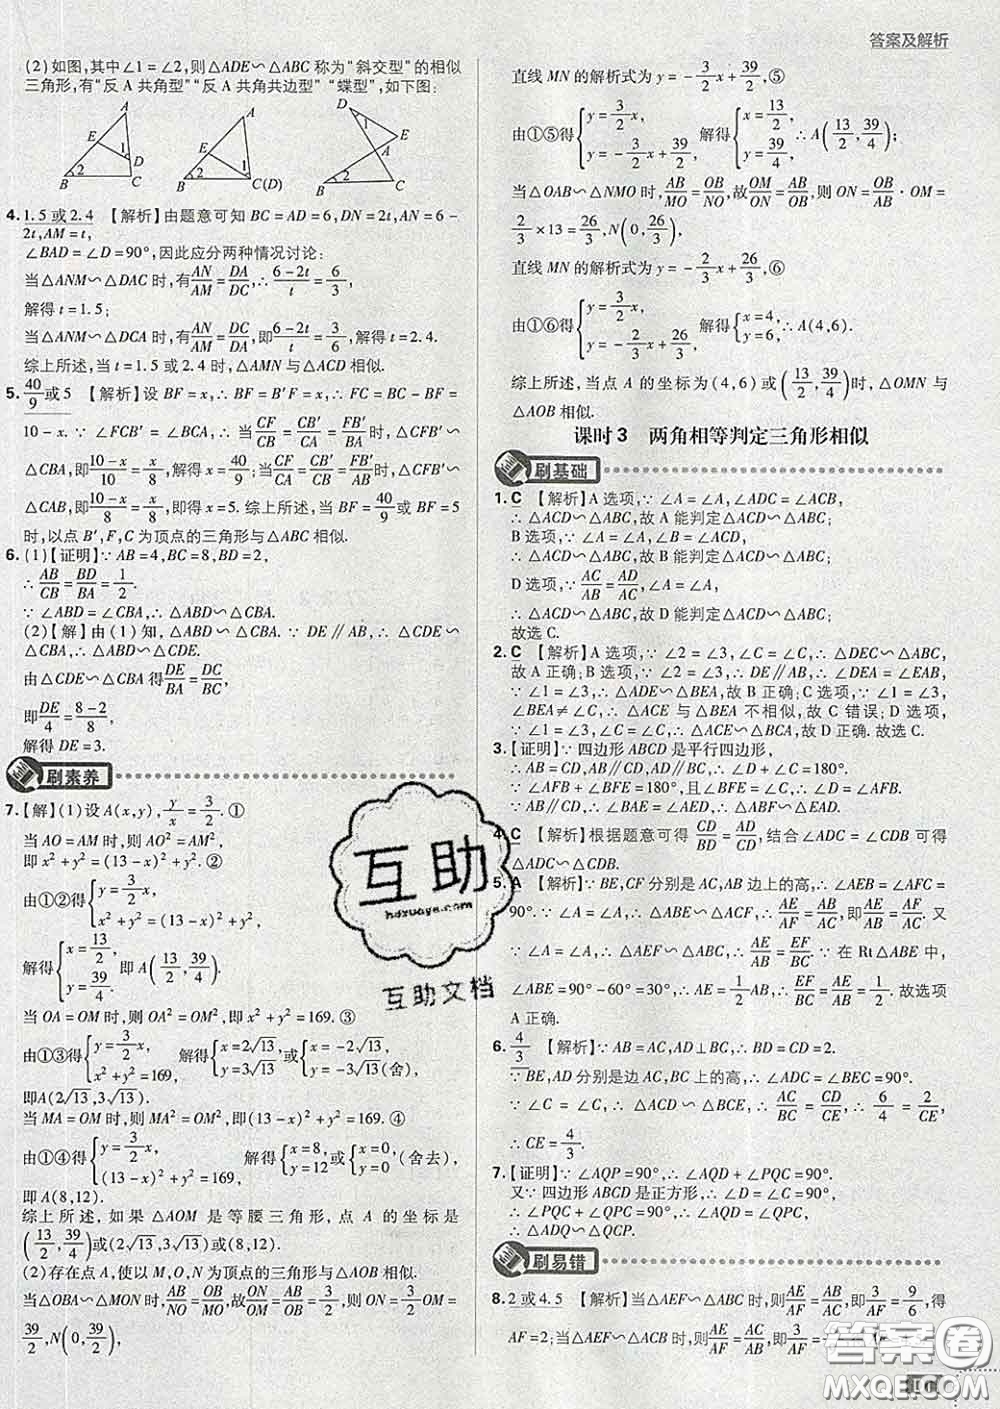 答案及解析
(2)如图,其中∠1=∠2,则△ADE∽△ABC称为“斜交型”的相似
三角形,有“反A共角型”“反A共角共边型”“蝶型”,如下图:
A E D B C 1 2
A E B C(D) 1 2
D E A B C 1 2
4. 1.5或2.4 【解析】由题意可知BC=AD=6,DN=2t,AN=6-
2t,AM=t,
∠BAD=∠D=90°,因此应分两种情况讨论:
当△ANM∽△DAC时,有AN/AM=DA/DC,∴(6-2t)/t=6/3,
解得t=1.5;
当△ANM∽△DCA时,有AN/AM=DC/DA,即(6-2t)/t=3/6,解得t=2.4.
综上所述,当t=1.5或2.4时,△AMN与△ACD相似.
5. 40/9或5 【解析】设BF=x,∴BF=B′F=x,∴FC=BC-BF=
10-x.∵∠FCB′=∠BCA,∴当CF/CB=CB′/CA=FB′/BA时,△CFB′∽
△CBA,即(10-x)/10=x/8,解得x=40/9;当CF/CA=CB′/CB=FB′/AB时,△CFB′∽
△CAB,即(10-x)/8=x/8,即x=5,解得x=5.故当BF=40/9或BF=5
时,以点B′,F,C为顶点的三角形与△ABC相似.
6. (1)【证明】∵AB=4,BC=8,BD=2,
∴AB/CB=BD/BA=1/2.
∵∠ABD=∠CBA,∴△ABD∽△CBA.
(2)【解】由(1)知,△ABD∽△CBA.∵DE∥AB,∴△CDE∽
△CBA,∴△ABD∽△CDE.
由△CDE∽△CBA得DE/BA=DC/BC,
即DE/4=(8-2)/8,
解得DE=3.
刷素养
7. 【解】(1)设A(x,y),y/x=3/2.①
当AO=AM时,则AO²=AM²,
即x²+y²=(13-x)²+y².②
由①②得{y=3/2x, x²+y²=(13-x)²+y²,
解得{x=13/2, y=39/4,即A(13/2,39/4).
当OA=OM时,则OA²=OM²,即x²+y²=169.③
由①③得{y=3/2x, x²+y²=169,解得{x=2√13, y=3√13或{x=-2√13, y=-3√13(舍),
即A(2√13,3√13).
当MA=OM时,则MA²=OM²,即(13-x)²+y²=169.④
由①④得{y=3/2x, (13-x)²+y²=169,解得{x=8, y=12或{x=0, y=0,(舍去),
即A(8,12).
综上所述,如果△AOM是等腰三角形,点A的坐标是
(13/2,39/4)或(2√13,3√13)或(8,12).
(2)存在点A,使以M,O,N为顶点的三角形与△AOB相似.
当△OBA∽△MON时,AB/NO=OB/MO,故OM/ON=OB/AB=3/2,则ON=2/3OM=
39/2,N(0,39/2),
直线MN的解析式为y=-3/2x+39/2,⑤
由①⑤得{y=3/2x, y=-3/2x+39/2,解得{x=13/2, y=39/4,∴A(13/2,39/4);
当△OAB∽△NMO时,AB/MO=OB/NO,故OM/ON=AB/OB,则ON=OB/AB·OM=
2/3×13=26/3,N(0,26/3),
直线MN的解析式为y=-2/3x+26/3,⑥
由①⑥得{y=3/2x, y=-2/3x+26/3,解得{x=4, y=6,∴A(4,6).
综上所述,当点A的坐标为(4,6)或(13/2,39/4)时,△OMN与
△AOB相似.
课时3 两角相等判定三角形相似
刷基础
1. C 【解析】A选项,∵∠A=∠A,∠ADC=∠ACB,
∴△ADC∽△ABC,故A能判定△ADC∽△ABC;
B选项,
∴△ADC∽△ABC,故B能判定△ADC∽△ABC;
D选项,∵AC/AB=AD/AC,∠A=∠A,
∴△ADC∽△ABC,故D能判定△ADC∽△ABC;
故选C.
2. C 【解析】A选项,∵∠2=∠3,∠C=∠C,∴△DEC∽△ABC,
故A正确;B选项,∵∠2=∠3,∴DE∥AB,∴∠DEA=∠EAB,
∵∠1=∠3,∴△ADE∽△BEA,故B正确;C选项,∵∠1=∠3,
∠BEA≠∠C,∴△ACE与△ABE不相似,故C错误;D选项,
∵∠1=∠2,∠C=∠C,∴△ACE∽△ECD,故D正确.故选C.
3. 【证明】∵四边形ABCD是平行四边形,
∴AB=CD,AB∥CD,AD∥BC,∴∠D+∠C=180°.
∵∠AFB+∠BFE=180°,且∠BFE=∠C,∴∠AFB=∠D.
∵AB∥CD,∴∠BAE=∠AED,∴△ABF∽△EAD.
4. C 【解析】根据题意可得CD/BD=AD/CD,结合∠ADC=∠CDB可得
△ADC∽△CDB.
5. A 【解析】∵BE,CF分别是AC,AB边上的高,∴∠AEB=∠AFC=
90°.∵∠A=∠A,∴△ABE∽△ACF,∴AE/AF=AB/AC,即AE/AB=AF/AC.又
∵∠A=∠A,∴△AEF∽△ABC,∴AE/AB=EF/BC.∵在Rt△ABE中,
∠ABE=90°-60°=30°,∴AE=1/2AB,∴EF/BC=AE/AB=1/2.故选项
A正确.
6. 4/3 【解析】∵AB=AC,AD⊥BC,∴BD=CD=2.
∵BE,AD分别是边AC,BC上的高,∴∠ADC=∠BEC=90°.
∵∠C=∠C,∴△ACD∽△BCE,∴AC/BC=CD/CE,∴6/4=2/CE,
∴CE=4/3.
7. 【证明】∵∠AQP=90°,∴∠AQD+∠PQC=90°.
又∵四边形ABCD是正方形,∴∠C=∠D=90°,
∴∠PQC+∠QPC=90°,∴∠AQD=∠QPC,
∴△ADQ∽△QCP.
刷易错
8. 2或4.5 【解析】当△AEF∽△ABC时,则AE/AB=AF/AC,即3/AF=9/6,得
AF=2;当△AEF∽△ACB时,则AE/AC=AF/AB,即
互助
hdzuoye.com
互助文档
答案圈
MXQE.COM